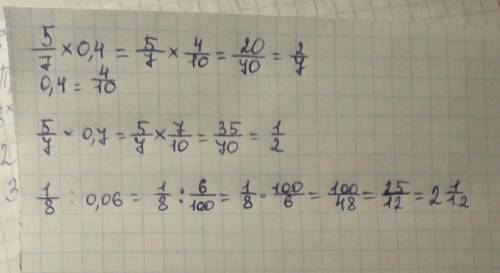 5/7 × 0,4 = 5/7 × 4/10 = 20/70 = 2/7
0,4 = 4/10
5/7 × 0,7 = 5/7 × 7/10 = 35/70 = 1/2
1/8 : 0,06 = 1/8 : 6/100 = 1/8 · 100/6 = 100/48 = 25/12 = 2 1/12